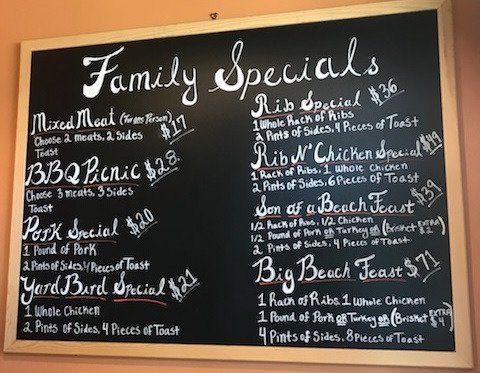 Family Specials
Mixed Meat (For one Person) $17
Choose 2 meats, 2 Sides
Toast
BBQ Picnic $28
Choose 3 meats, 3 sides
Toast
Pork Special $20
1 Pound of Pork
2 Pints of Sides, 4 Pieces of Toast
Yard Bird Special $21
1 Whole Chicken
2 Pints of Sides, 4 Pieces of Toast
Rib Special $36
1 Whole Rack of Ribs
2 Pints of Sides, 4 Pieces of Toast
Rib N' Chicken Special $49
1 Rack of Ribs, 1 Whole Chicken
2 Pints of Sides, 6 Pieces of Toast
Son of a Beach Feast $39
1/2 Rack of Ribs, 1/2 Chicken
1/2 Pound of Pork OR Turkey OR (Brisket EXTRA $2)
2 Pints of Sides, 4 Pieces of Toast
Big Beach Feast $71
1 Rack of Ribs, 1 Whole Chicken
1 Pound of Pork OR Turkey OR (Brisket EXTRA $4)
4 Pints of Sides, 8 Pieces of Toast